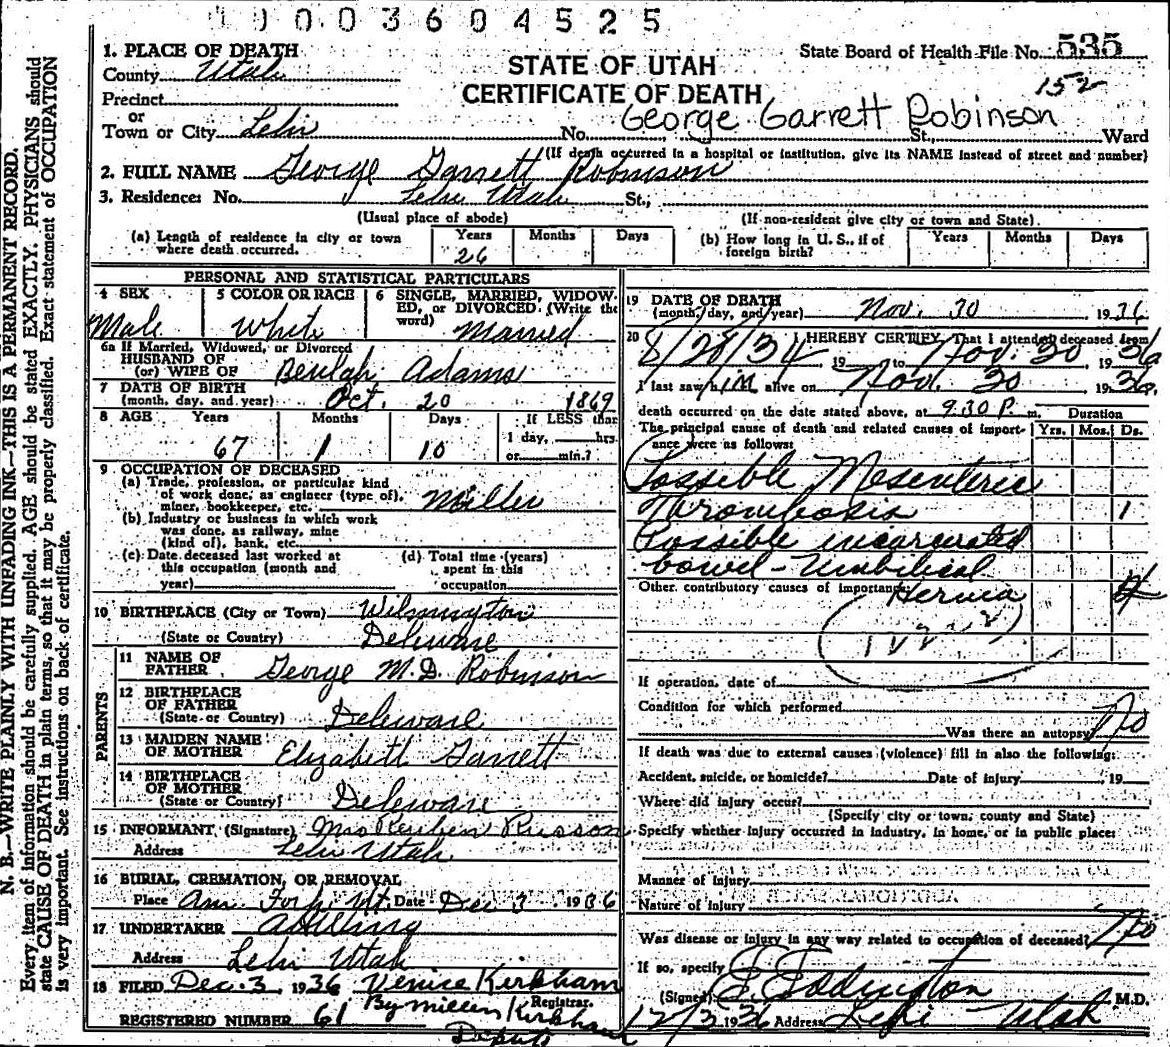 10003604525
1. PLACE OF DEATH
County Utah
Precinct
or
Town or City Lehi
STATE OF UTAH
CERTIFICATE OF DEATH
State Board of Health File No. 535
152
George Garrett Robinson
No. St., Ward
(If death occurred in a hospital or institution, give its NAME instead of street and number)
2. FULL NAME George Garrett Robinson
3. Residence: No. Lehi Utah St.,
(Usual place of abode)
(If non-resident give city or town and State)
(a) Length of residence in city or town where death occurred. Years 26 Months Days
(b) How long in U. S., if of foreign birth? Years Months Days
PERSONAL AND STATISTICAL PARTICULARS
4 SEX Male
5 COLOR OR RACE White
6 SINGLE, MARRIED, WIDOWED, or DIVORCED (Write the word) Married
6a If Married, Widowed, or Divorced
HUSBAND OF
(or) WIFE OF Beulah Adams
7 DATE OF BIRTH
(month, day, and year) Oct. 20 1869
8 AGE Years 67 Months 1 Days 10
If LESS than
1 day, hrs.
or min.?
9 OCCUPATION OF DECEASED
(a) Trade, profession, or particular kind
of work done, as engineer (type of),
miner, bookkeeper, etc. Miller
(b) Industry or business in which work
was done, as railway, mine
(kind of), bank, etc.
(c) Date deceased last worked at
this occupation (month and
year)
(d) Total time (years)
spent in this
occupation
10 BIRTHPLACE (City or Town) Wilmington
(State or Country) Deleware
PARENTS
11 NAME OF
FATHER George M. D. Robinson
12 BIRTHPLACE
OF FATHER
(State or Country) Deleware
13 MAIDEN NAME
OF MOTHER Elizabeth Garrett
14 BIRTHPLACE
OF MOTHER
(State or Country) Deleware
15 INFORMANT (Signature) Mrs Reuben Russon
Address Lehi Utah
16 BURIAL, CREMATION, OR REMOVAL
Place Am. Fork Ut. Date Dec 3 1936
17 UNDERTAKER
Address Lehi Utah
18 FILED Dec. 3 1936 Venice Kirkham
Registrar.
By Kirkham
REGISTERED NUMBER 61
Deputy
19 DATE OF DEATH
(month, day, and year) Nov. 30 1936
20 I HEREBY CERTIFY, That I attended deceased from
8/28/34 19 to Nov. 30 1936
I last saw him alive on Nov. 30 1936
death occurred on the date stated above, at 9.30 P. m.
Duration
The principal cause of death and related causes of importance were as follows: Yrs. Mos. Ds.
Possible Mesenteric
Thrombosis 1
Possible incarcerated
bowel - Umbilical
Other contributory causes of importance: Hernia
If operation, date of
Condition for which performed
Was there an autopsy? No
If death was due to external causes (violence) fill in also the following:
Accident, suicide, or homicide? Date of injury 19
Where did injury occur?
(Specify city or town, county and State)
Specify whether injury occurred in industry, in home, or in public place:
Manner of injury
Nature of injury
Was disease or injury in any way related to occupation of deceased? No
If so, specify
(Signed) Eddington M.D.
12/3 1936 Address Lehi Utah
N. B.—WRITE PLAINLY WITH UNFADING INK—THIS IS A PERMANENT RECORD.
Every item of information should be carefully supplied. AGE should be stated EXACTLY. PHYSICIANS should
state CAUSE OF DEATH in plain terms, so that it may be properly classified. Exact statement of OCCUPATION
is very important. See instructions on back of certificate.